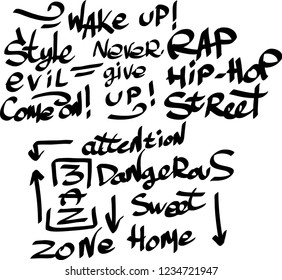 WAKE UP!
Style Never RAP
evil = give HIP-HOP
Come on! UP! Street
attention
MAN DangerouS
Sweet
ZONE Home
shutterstock.com · 1234721947